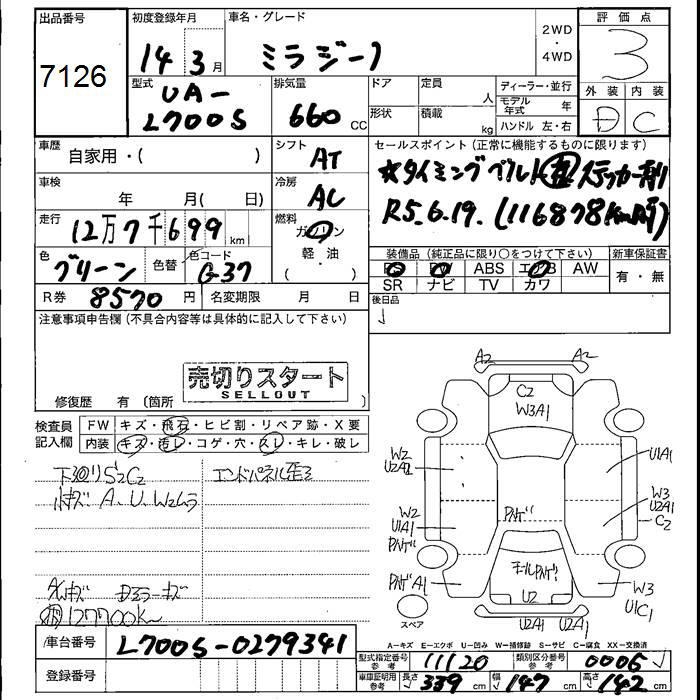 出品番号
7126
初度登録年月
14年3月
車名・グレード
ミラジーノ
2WD・4WD
評価点
3
外装 内装
D C
型式
UA-L700S
排気量
660 CC
ドア
形状
定員 人
積載 kg
ディーラー・並行
モデル年式 年
ハンドル 左・右
車歴
自家用・( )
シフト
AT
セールスポイント(正常に機能するものに限ります)
☆タイミングベルト
ステッカー有り
R5.6.19.(116878Km時)
車検
年 月( 日)
冷房
AC
走行
12万7千699km
燃料
ガソリン
軽・油
( )
色
グリーン
色替
色コード
G37
装備品(純正品に限り○をつけて下さい)
PS PW ABS エアB AW
SR ナビ TV カワ
新車保証書
有・無
R券 8570円
名変期限 月 日
後日品
注意事項申告欄(不具合内容等は具体的に記入して下さい)
売切りスタート
SELLOUT
修復歴 有(箇所 )
検査員記入欄
FW キズ・飛石・ヒビ割・リペア跡・X要
内装 キズ・汚レ・コゲ・穴・スレ・キレ・破レ
下廻りS2C2
小キズ A.U.W2ムラ
エンドパネル歪ミ
Dミラーキズ
127700K
A2 A2
C2
W3A1
W2
U2A2
U1A1
W2
U1A1
W3
U2A1
C2
W3
U1C1
A1
U2
U2A1 U2A1
スペア
A−キズ E−エクボ U−凹み W−補修跡 S−サビ C−腐食 XX−交換済
車台番号
L700S-0279341
登録番号
型式指定番号
参考
11120
類別区分番号
参考
0006
車庫証明用
参考
長さ 339 cm
幅 147 cm
高さ 142 cm